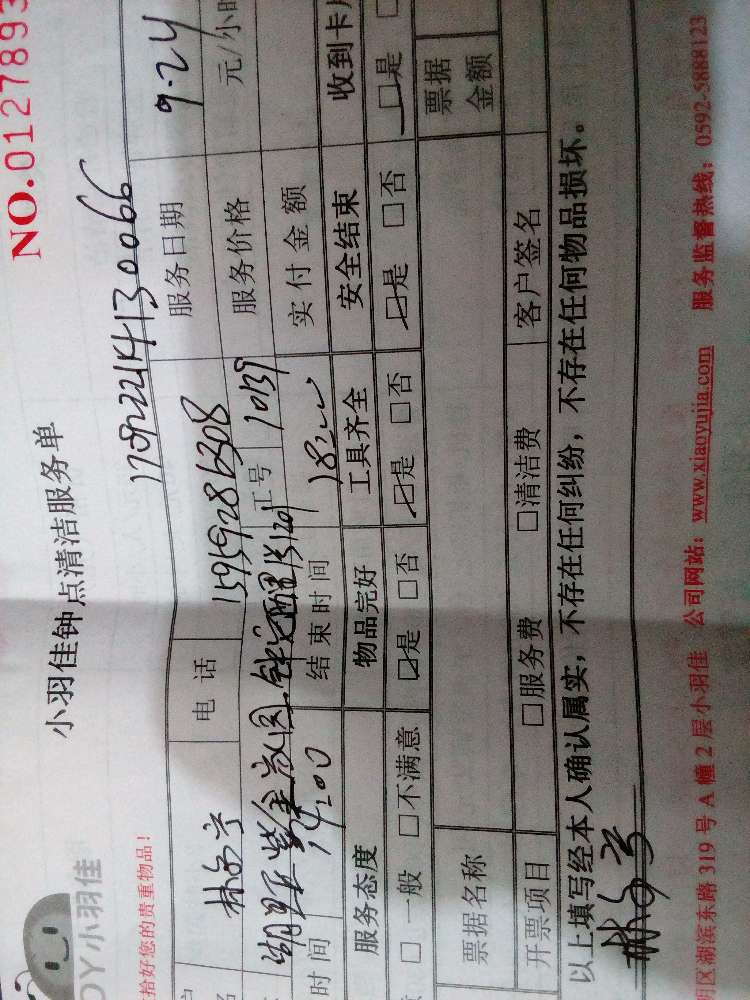 NO.0127893
小羽佳钟点清洁服务单
OY小羽佳
拾好您的贵重物品!
电话 15959286308 服务日期 9.24
服务价格 元/小时
工号 10139
时间 14:00 结束时间 18:00 实付金额
服务态度 物品完好 工具齐全 安全结束 收到卡
□一般 □不满意 □是 □否 □是 □否 □是 □否 □是
票据名称 票据金额
开票项目 □服务费 □清洁费 客户签名
以上填写经本人确认属实，不存在任何纠纷，不存在任何物品损坏。
区湖滨东路319号A幢2层小羽佳 公司网站：www.xiaoyujia.com 服务监督热线：0592-5888123